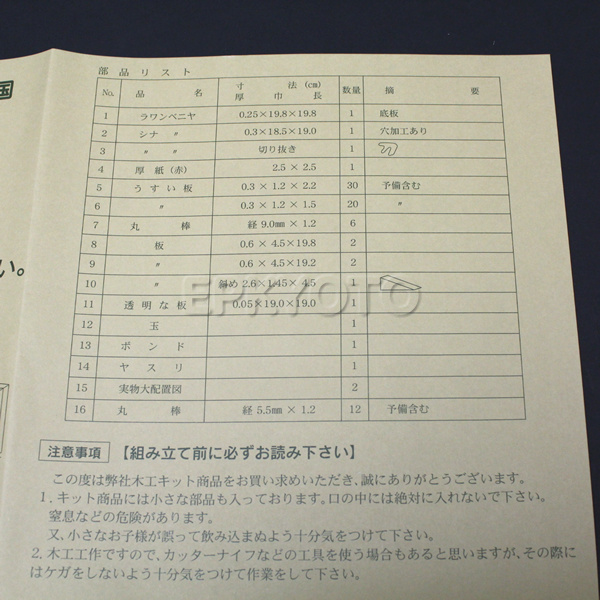 国
い。
部品リスト
No. 品名 寸法(cm) 厚 巾 長 数量 摘要
1 ラワンベニヤ 0.25×19.8×19.8 1 底板
2 シナ 〃 0.3×18.5×19.0 1 穴加工あり
3 〃 〃 切り抜き 1
4 厚紙(赤) 2.5×2.5 1
5 うすい板 0.3×1.2×2.2 30 予備含む
6 〃 0.3×1.2×1.5 20 〃
7 丸棒 経9.0mm×1.2 6
8 板 0.6×4.5×19.8 2
9 〃 0.6×4.5×19.2 2
10 〃 斜め2.6×1.45×4.5 1
11 透明な板 0.05×19.0×19.0 1
12 玉 1
13 ボンド 1
14 ヤスリ 1
15 実物大配置図 2
16 丸棒 経5.5mm×1.2 12 予備含む
EPKYOTO
注意事項 【組み立て前に必ずお読み下さい】
この度は弊社木工キット商品をお買い求めいただき、誠にありがとうございます。
1.キット商品には小さな部品も入っております。口の中には絶対に入れないで下さい。
窒息などの危険があります。
又、小さなお子様が誤って飲み込まぬよう十分気をつけて下さい。
2.木工工作ですので、カッターナイフなどの工具を使う場合もあると思いますが、その際に
はケガをしないよう十分気をつけて作業をして下さい。